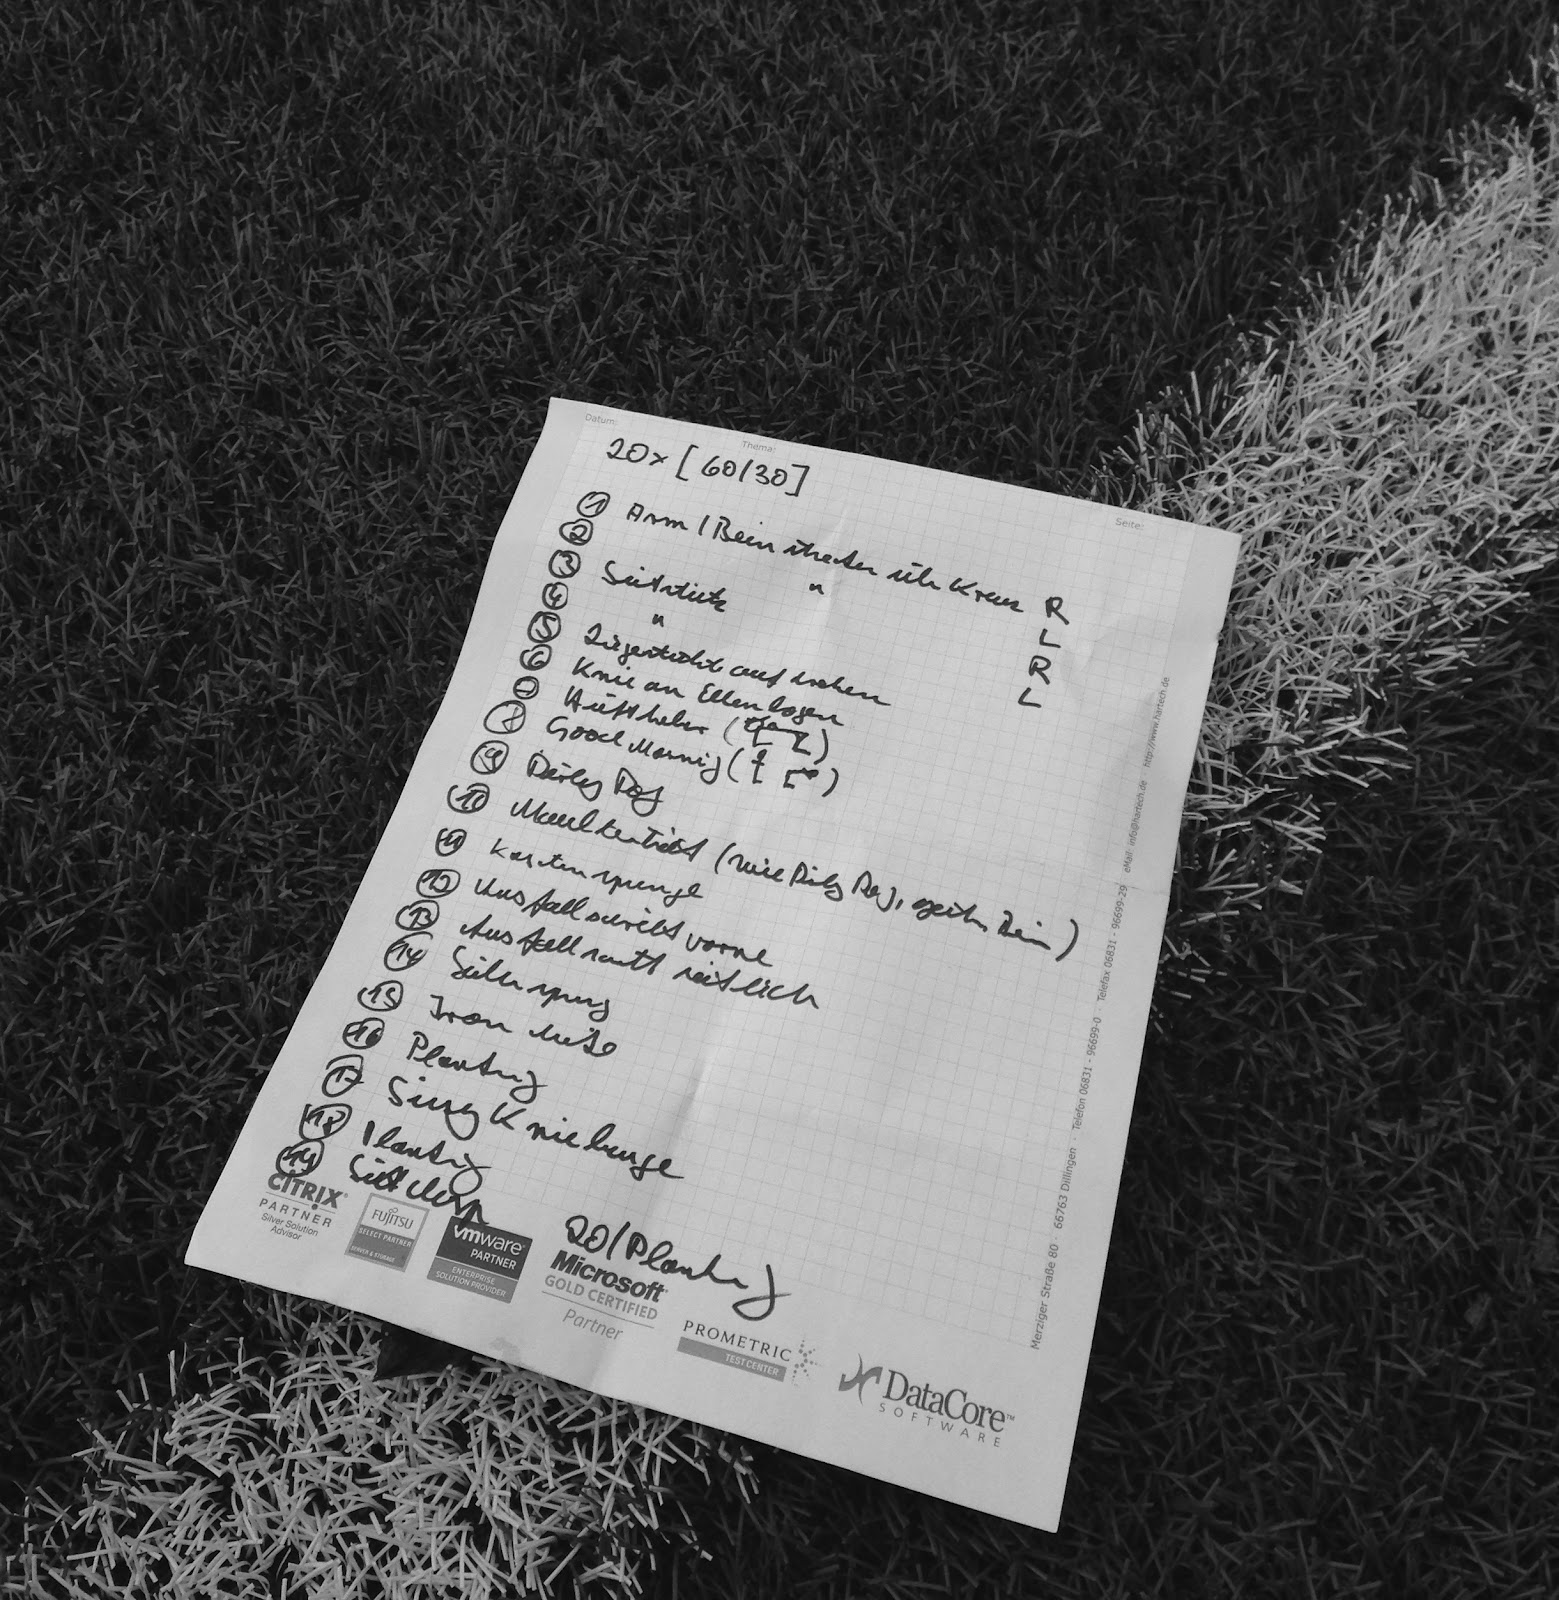 Datum:
Thema:
Seite:
20x [60/30]
1 Arm / Bein strecken über Kreuz R
2 " L
3 Seitstütz R
4 " L
5 Liegestütz aufdrehen
6 Knie an Ellenbogen
7 Hüftheber ( )
8 Good Mornig ( )
9 Dirty Dog
10 (wie Dirty Dog, Bein)
11 Kastensprünge
12 Ausfallschritt vorne
13 Ausfallschritt seitlich
14 Seilsprung
15 Iron Mike
16 Planking
17 Sumo Kniebeuge
18 Planking
19
20/Planking
CITRIX®
PARTNER
Silver Solution
Advisor
FUJITSU
SELECT PARTNER
SERVER & STORAGE
vmware®
PARTNER
ENTERPRISE
SOLUTION PROVIDER
Microsoft®
GOLD CERTIFIED
Partner
PROMETRIC
TEST CENTER
DataCore™
SOFTWARE
Merziger Straße 80 · 66763 Dillingen · Telefon 06831 - 96699-0 · Telefax 06831 - 96699-29 eMail: info@hartech.de http://www.hartech.de